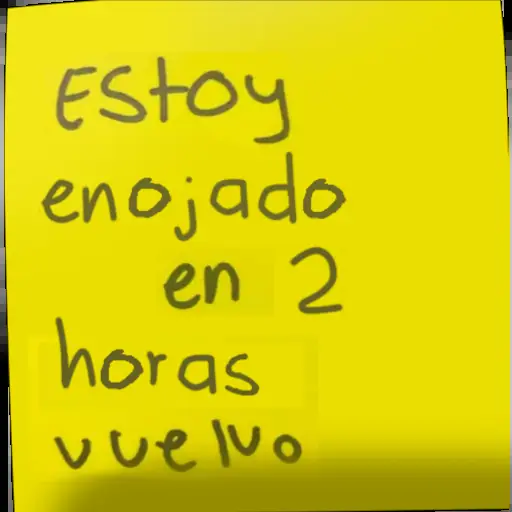 Estoy
enojado
en 2
horas
vuelvo